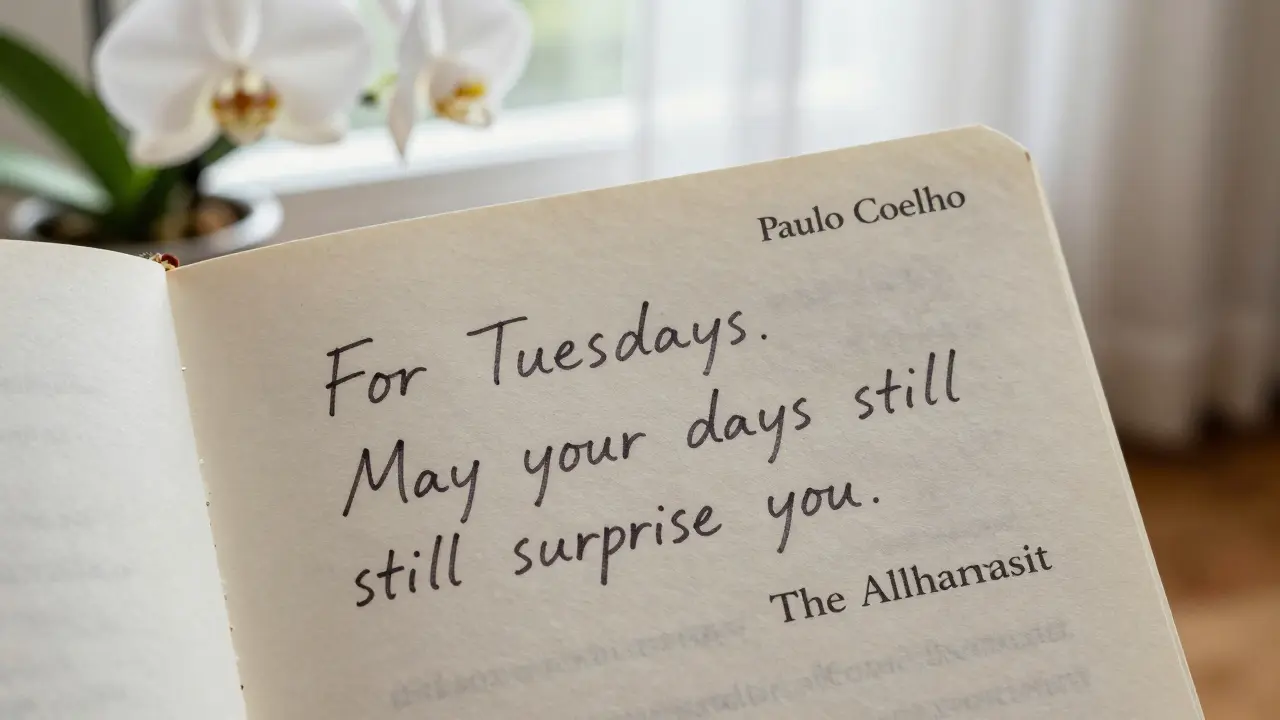 Paulo Coelho
For Tuesdays.
May your days still
still surprise you.
The Allharrasit